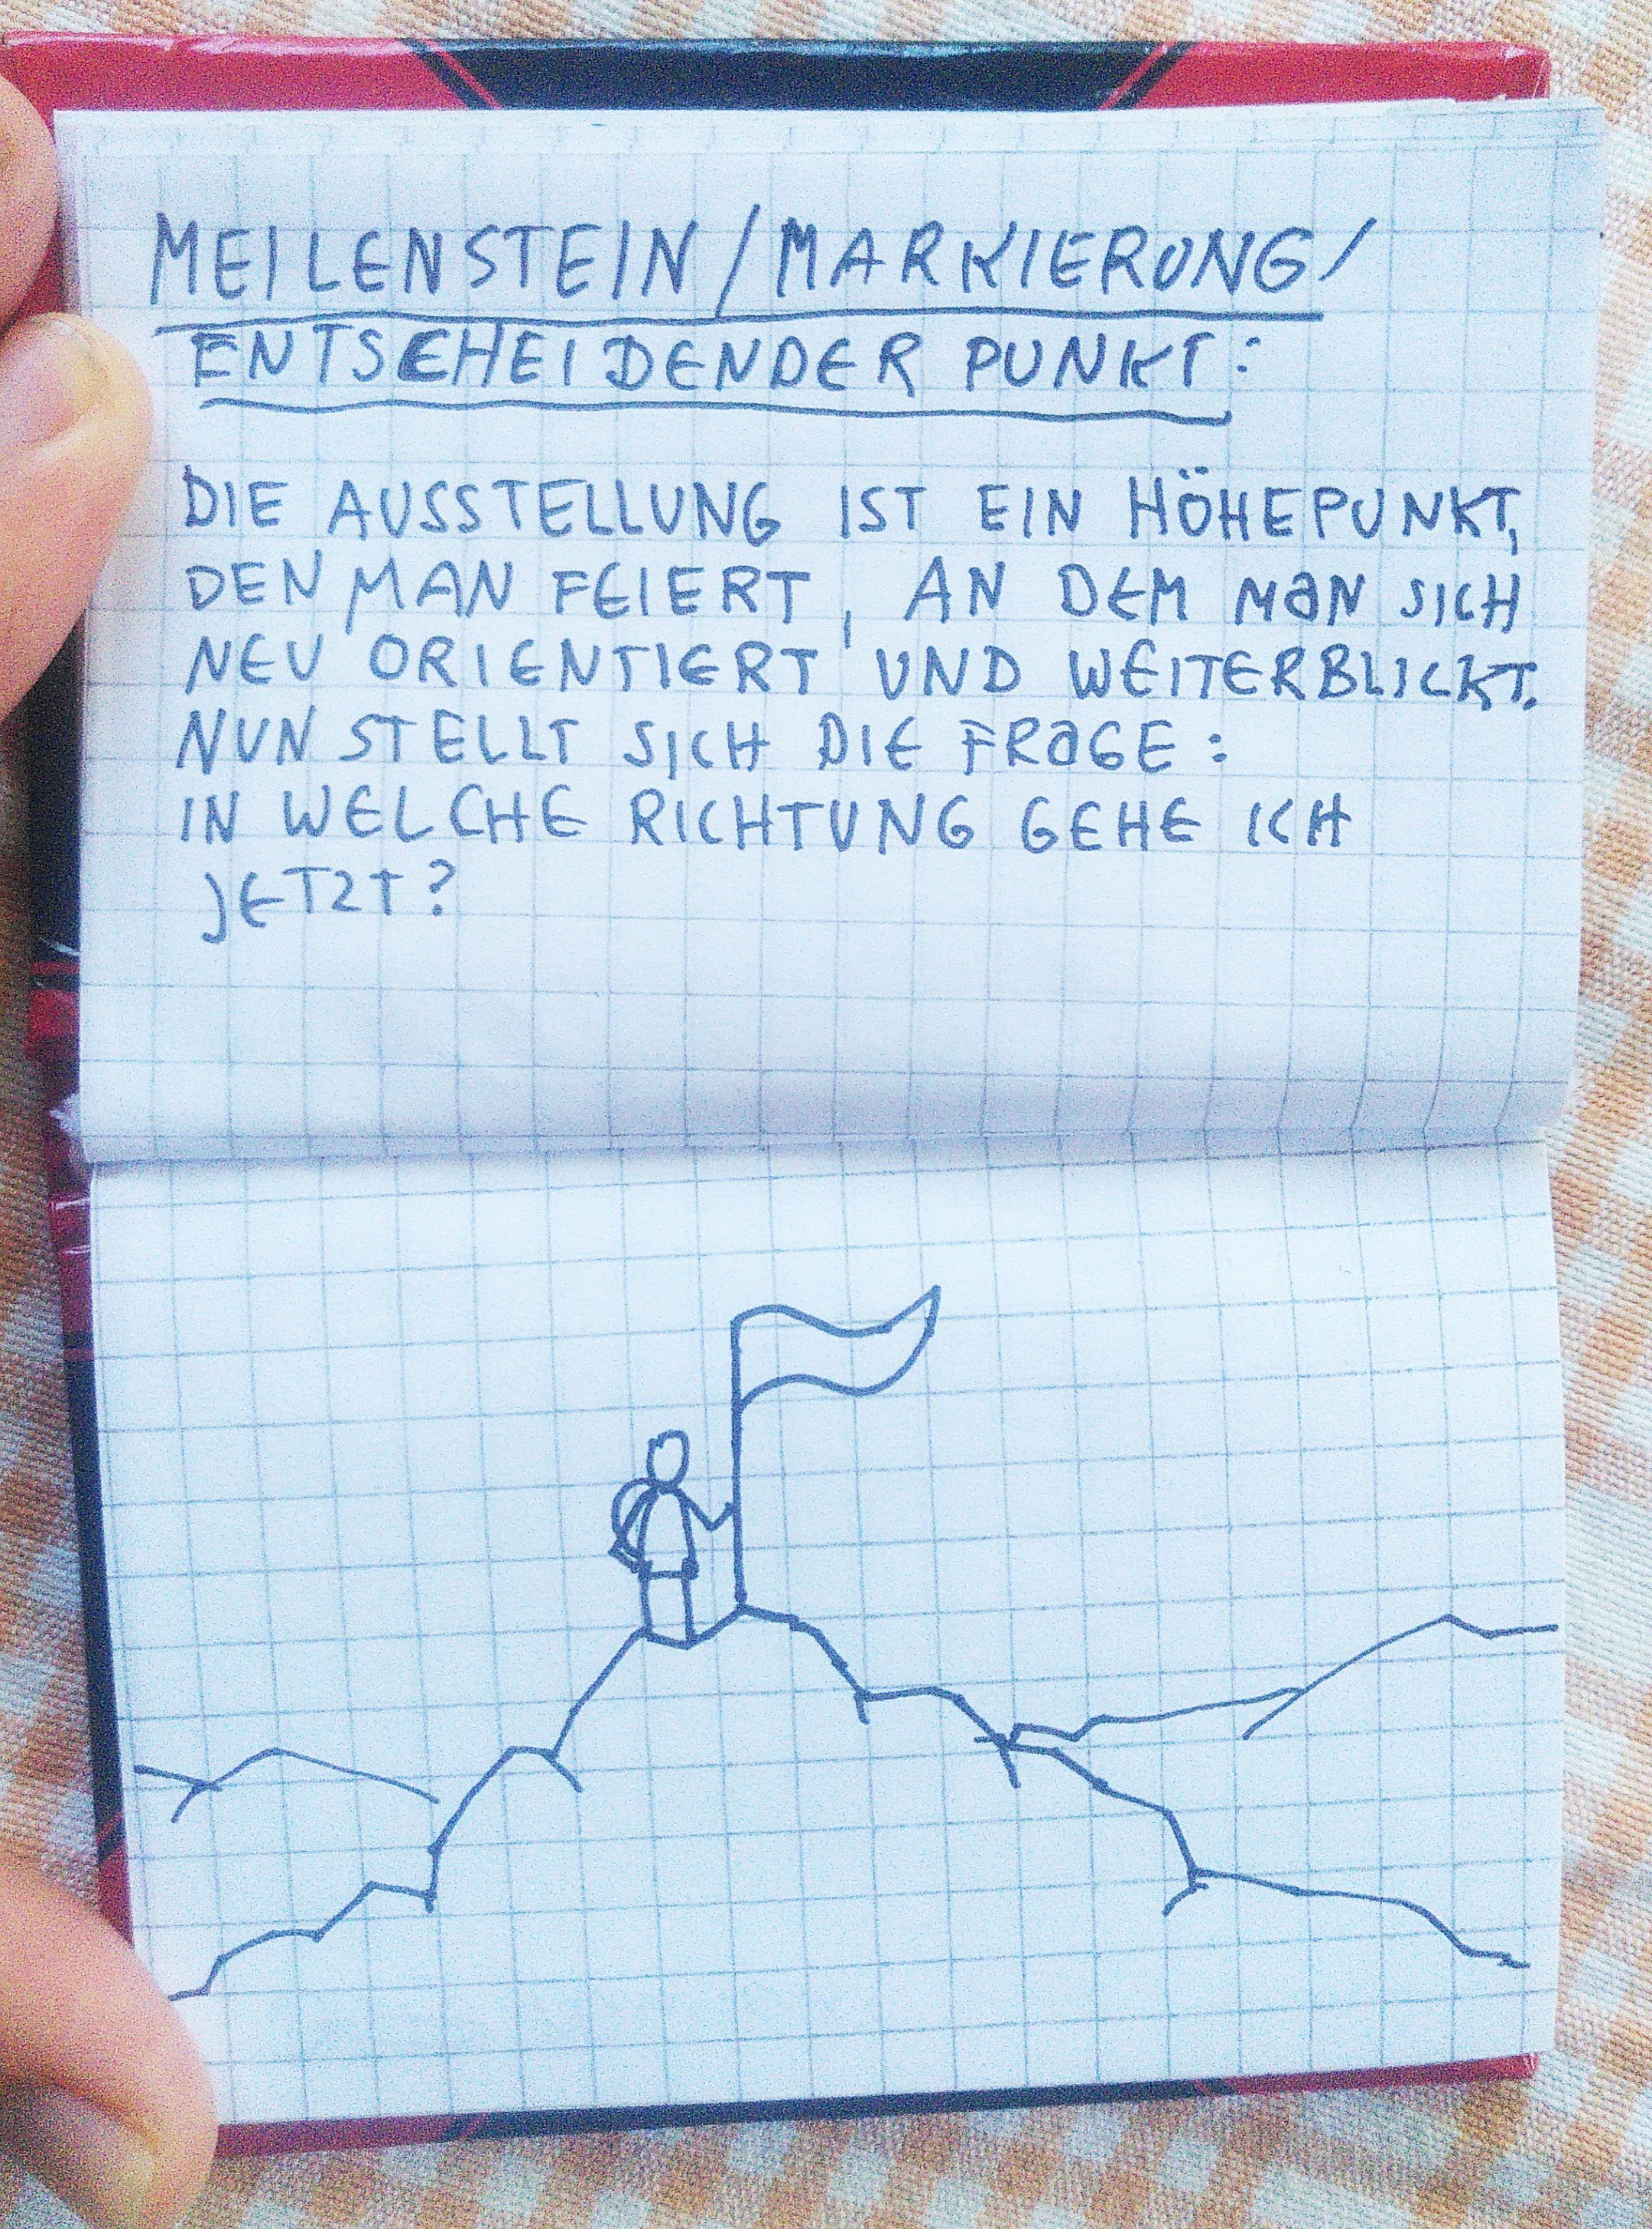 MEILENSTEIN/MARKIERUNG/
ENTSCHEIDENDER PUNKT:
DIE AUSSTELLUNG IST EIN HÖHEPUNKT,
DEN MAN FEIERT, AN DEM MAN SICH
NEU ORIENTIERT UND WEITERBLICKT.
NUN STELLT SICH DIE FRAGE:
IN WELCHE RICHTUNG GEHE ICH
JETZT?